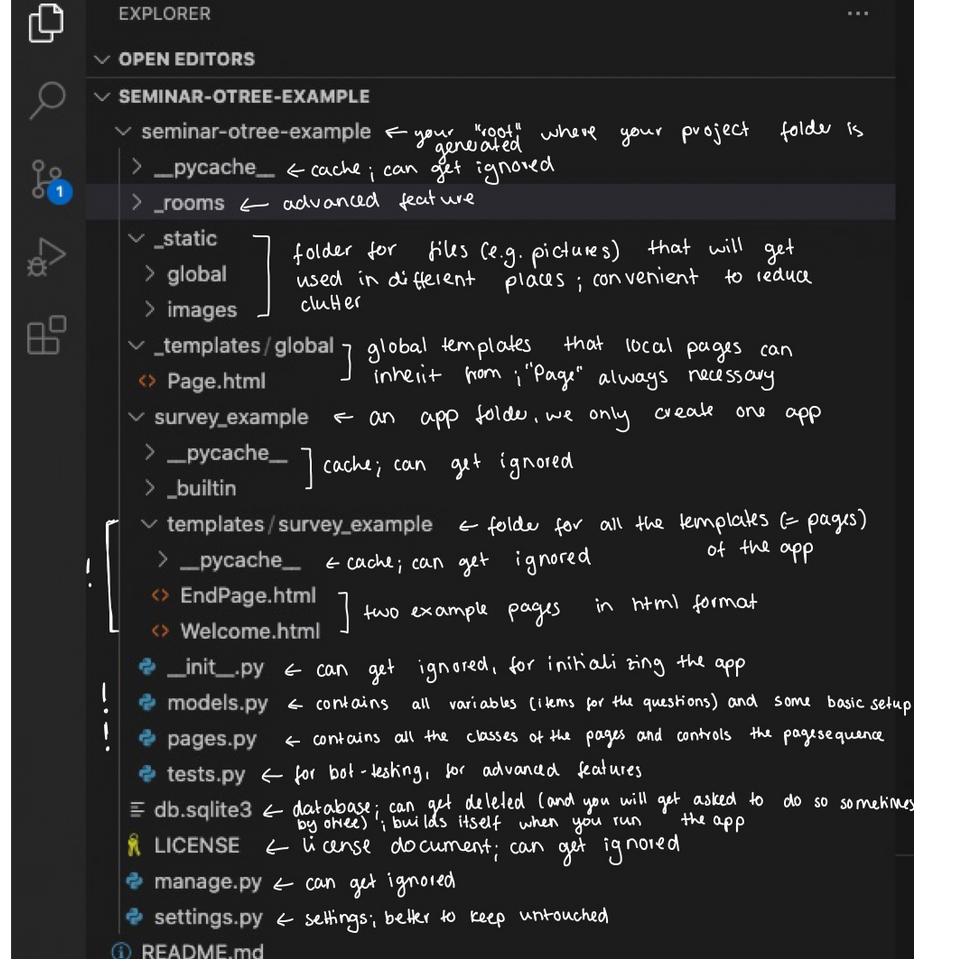 EXPLORER ...
OPEN EDITORS
SEMINAR-OTREE-EXAMPLE
seminar-otree-example ← your "root" where your project folder is
generated
__pycache__ ← cache; can get ignored
1
_rooms ← advanced feature
_static
folder for files (e.g. pictures) that will get
global
used in different places; convenient to reduce
images
clutter
_templates/global
global templates that local pages can
Page.html
inherit from; "Page" always necessary
survey_example ← an app folder, we only create one app
__pycache__
cache; can get ignored
_builtin
templates/survey_example ← folder for all the templates (= pages)
of the app
!
__pycache__ ← cache; can get ignored
EndPage.html
two example pages in html format
Welcome.html
__init__.py ← can get ignored, for initializing the app
! models.py ← contains all variables (items for the questions) and some basic setup
! pages.py ← contains all the classes of the pages and controls the pagesequence
tests.py ← for bot-testing, for advanced features
db.sqlite3 ← database; can get deleted (and you will get asked to do so sometimes
by otree); builds itself when you run the app
LICENSE ← license document; can get ignored
manage.py ← can get ignored
settings.py ← settings; better to keep untouched
README.md